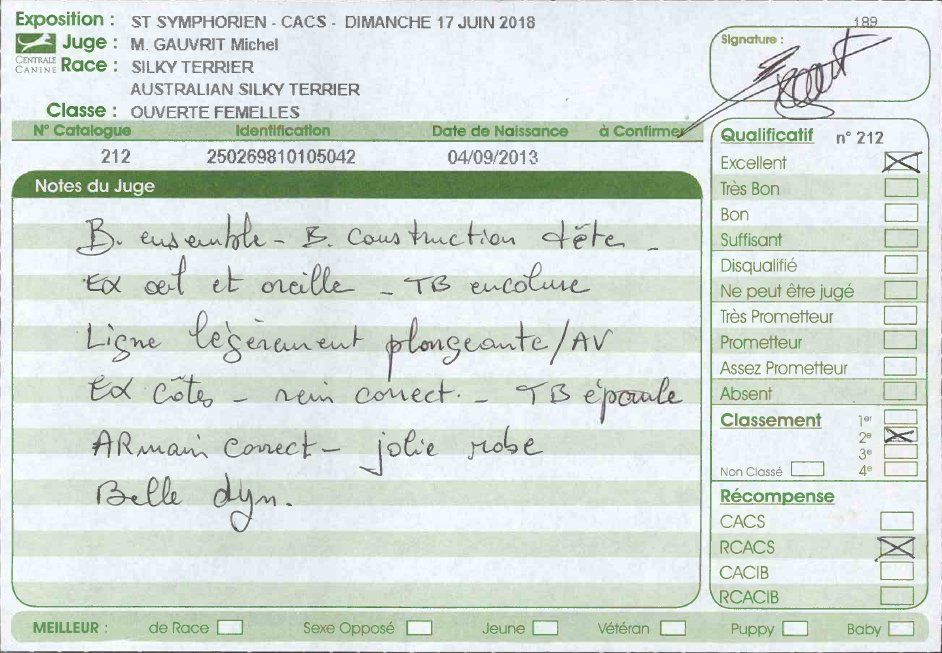 189
Exposition : ST SYMPHORIEN - CACS - DIMANCHE 17 JUIN 2018
Signature :
Juge : M. GAUVRIT Michel
CENTRALE CANINE
Race : SILKY TERRIER
AUSTRALIAN SILKY TERRIER
Classe : OUVERTE FEMELLES
N° Catalogue Identification Date de Naissance à Confirmer
212 250269810105042 04/09/2013
Notes du Juge
B. ensemble - B. construction tête -
EX œil et oreille - TB encolure
Ligne légèrement plongeante/AV
EX côtes - rein correct. - TB épaule
ARmain correct - jolie robe
Belle dyn.
Qualificatif n° 212
Excellent
Très Bon
Bon
Suffisant
Disqualifié
Ne peut être jugé
Très Prometteur
Prometteur
Assez Prometteur
Absent
Classement 1er
2e
3e
Non Classé 4e
Récompense
CACS
RCACS
CACIB
RCACIB
MEILLEUR : de Race Sexe Opposé Jeune Vétéran Puppy Baby